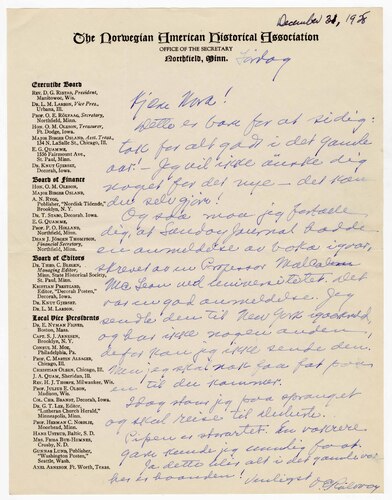 December 31, 1928
The Norwegian American Historical Association
OFFICE OF THE SECRETARY
Northfield, Minn.
Executive Board
REV. D. G. RISTAD, President,
Manitowoc, Wis.
DR. L. M. LARSON, Vice Pres.,
Urbana, Ill.
PROF. O. E. RÖLVAAG, Secretary,
Northfield, Minn.
HON. O. M. OLESON, Treasurer,
Ft. Dodge, Iowa.
MAJOR BIRGER OSLAND, Asst. Treas.,
134 N. LaSalle St., Chicago, Ill.
E. G. QUAMME,
1156 Fairmount Ave.,
St. Paul, Minn.
DR. KNUT GJERSET,
Decorah, Iowa.
Board of Finance
HON. O. M. OLESON.
MAJOR BIRGER OSLAND.
A. N. RYGG,
Publisher, "Nordisk Tidende",
Brooklyn, N. Y.
DR. T. STABO, Decorah, Iowa.
E. G. QUAMME.
PROF. P. O. HOLLAND,
Northfield, Minn.
DEAN J. JÖRGEN THOMPSON,
Financial Secretary,
Northfield, Minn.
Board of Editors
DR. THEO. C. BLEGEN,
Managing Editor,
Minn. State Historical Society,
St. Paul, Minn.
KRISTIAN PRESTGARD,
Editor, "Decorah Posten",
Decorah, Iowa.
DR. KNUT GJERSET
DR. L. M. LARSON.
Local Vice Presidents
DR. E. NYMAN FIGVED,
Boston, Mass.
CAPT. S. J. ARNESEN,
Brooklyn, N. Y.
CONSUL M. MOE,
Philadelphia, Pa.
PROF. C. MARIUS ALSAGER,
Chicago, Ill.
CHRISTIAN OLSEN, Chicago, Ill.
J. A. QUAM, Sheridan, Ill.
REV. H. J. THORPE, Milwaukee, Wis.
PROF. JULIUS E. OLSON,
Madison, Wis.
CH. CHR. BRANDT, Decorah, Iowa.
DR. G. T. LEE, Editor,
"Lutheran Church Herald",
Minneapolis, Minn.
PROF. HERMAN C. NORDLIE,
Moorhead, Minn.
HANS USTRUD, Baltic, S. D.
MRS. FRIDA BUE-HOMNES,
Crosby, N. D.
GUNNAR LUND, Publisher,
"Washington Posten",
Seattle, Wash.
AXEL ARNESON, Ft. Worth, Texas.
Kjære Nora!
Dette er bare for at si dig:
tak for alt godt i det gamle
aar. — Jeg vil ikke ønske dig
noget for det nye — det kan
du selv gjøre!
Og saa maa jeg fortælle
dig, at Sunday Journal hadde
en anmeldelse av boka igaar,
skrevet av en Professor
McLean ved Universitetet. Det
var en god anmeldelse. Jeg
sendte den til New York igaarkveld,
og har ikke nogen anden,
derfor kan jeg ikke sende den.
Men jeg skal nok faa fat paa
en til du kommer.
Idag staar jeg paa spranget
og skal reise til
Pipen er storartet. En vakrere
gave kunde jeg umulig faat.
Ja dette blir alt i det gamle vor
her er bounden! Venligst